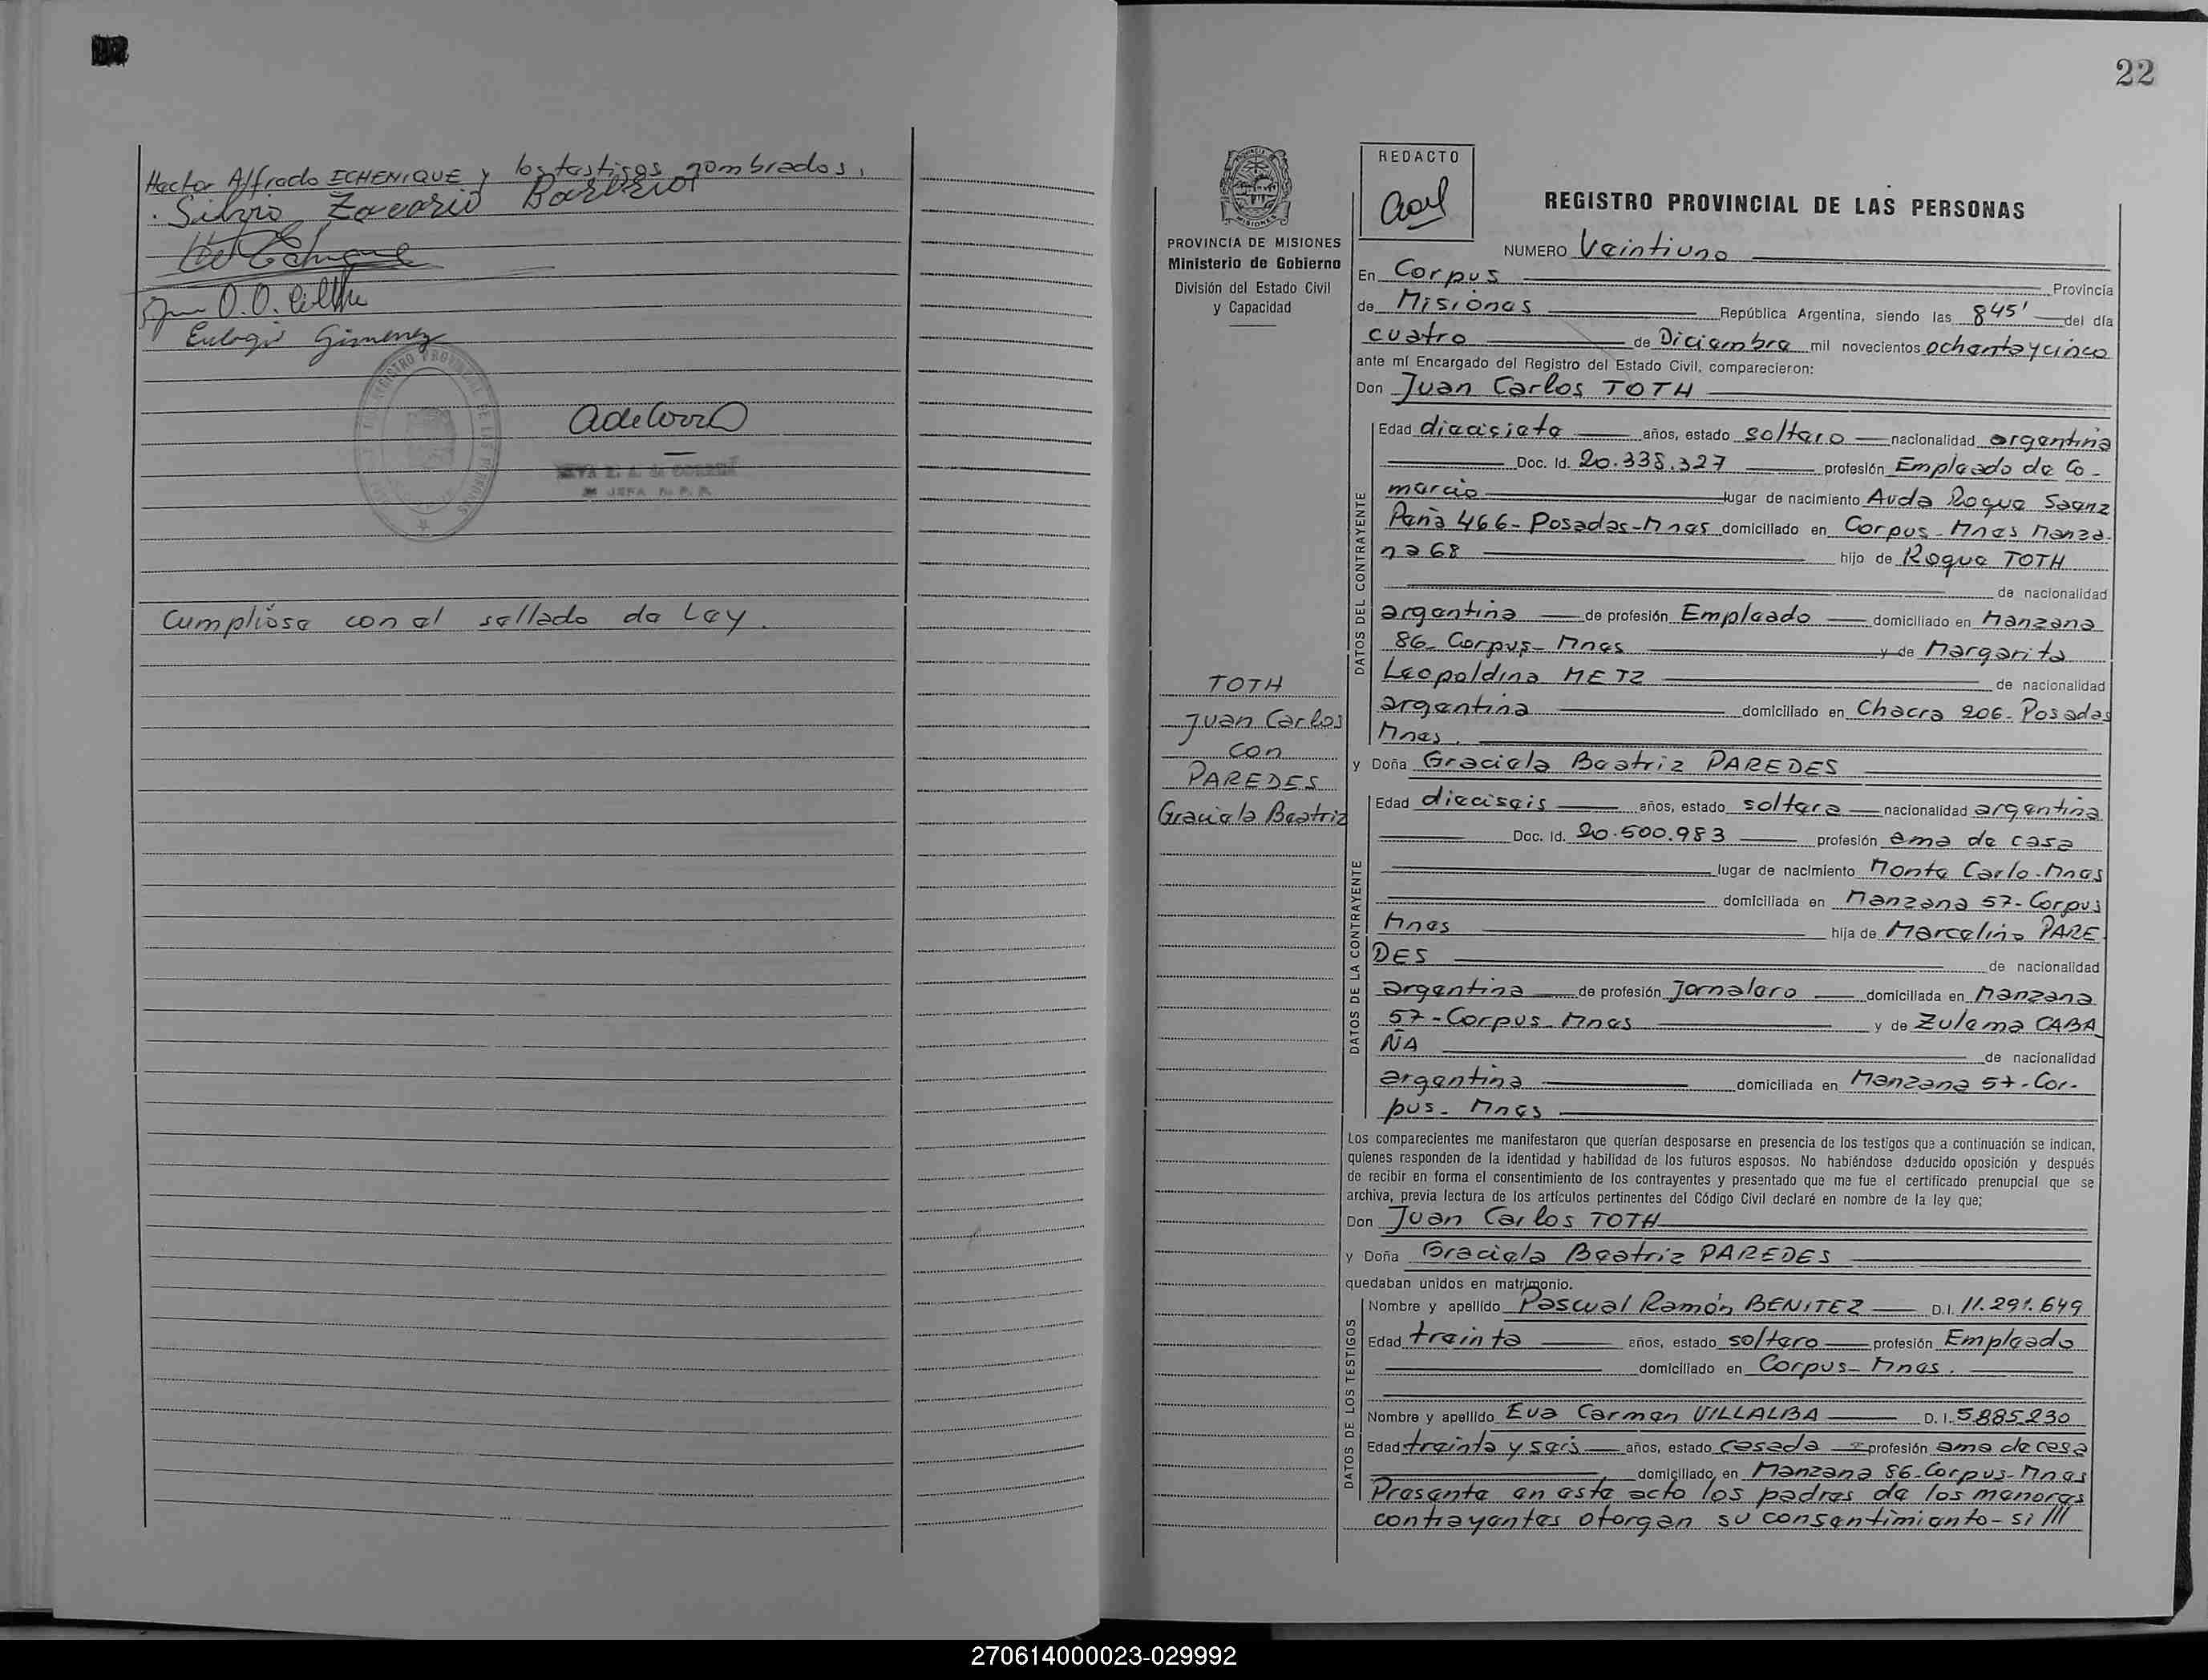 Hector Alfredo ECHENIQUE y los testigos nombrados.
Silvio Zacario
Eulogio Gimenez
Cumpliose con el sellado de Ley.
22
PROVINCIA DE MISIONES
Ministerio de Gobierno
División del Estado Civil
y Capacidad
REDACTO
REGISTRO PROVINCIAL DE LAS PERSONAS
NUMERO Veintiuno
En Corpus Provincia
de Misiones República Argentina, siendo las 845' del día
cuatro de Diciembre mil novecientos ochenta y cinco
ante mí Encargado del Registro del Estado Civil, comparecieron:
Don Juan Carlos TOTH
DATOS DEL CONTRAYENTE
Edad diecisiete años, estado soltero nacionalidad argentina
Doc. Id. 20.338.327 profesión Empleado de Co-
mercio lugar de nacimiento Avda Roque Saenz
Peña 466- Posadas-Mnes domiciliado en Corpus-Mnes Manza-
na 68 hijo de Roque TOTH
de nacionalidad
argentina de profesión Empleado domiciliado en Manzana
86- Corpus- Mnes y de Margarita
Leopoldina METZ de nacionalidad
argentina domiciliado en Chacra 206- Posadas
Mnes.
TOTH
Juan Carlos
con
PAREDES
Graciela Beatriz
y Doña Graciela Beatriz PAREDES
DATOS DE LA CONTRAYENTE
Edad dieciseis años, estado soltera nacionalidad argentina
Doc. Id. 20.500.983 profesión ama de casa
lugar de nacimiento Monte Carlo-Mnes
domiciliada en Manzana 57-Corpus
Mnes hija de Marcelino PARE
DES de nacionalidad
argentina de profesión Jornalero domiciliada en Manzana
57-Corpus-Mnes y de Zulema CABA
ÑA de nacionalidad
argentina domiciliada en Manzana 57-Cor-
pus- Mnes
Los comparecientes me manifestaron que querían desposarse en presencia de los testigos que a continuación se indican,
quienes responden de la identidad y habilidad de los futuros esposos. No habiéndose deducido oposición y después
de recibir en forma el consentimiento de los contrayentes y presentado que me fue el certificado prenupcial que se
archiva, previa lectura de los artículos pertinentes del Código Civil declaré en nombre de la ley que;
Don Juan Carlos TOTH
y Doña Graciela Beatriz PAREDES
quedaban unidos en matrimonio.
DATOS DE LOS TESTIGOS
Nombre y apellido Pascual Ramón BENITEZ D.I. 11.291.649
Edad treinta años, estado soltero profesión Empleado
domiciliado en Corpus- Mnes.
Nombre y apellido Eva Carmen VILLALBA D. I. 5.885.230
Edad treinta y seis años, estado casada profesión ama de casa
domiciliado en Manzana 86-Corpus-Mnes
Presente en este acto los padres de los menores
contrayentes otorgan su consentimiento- si ///
270614000023-029992